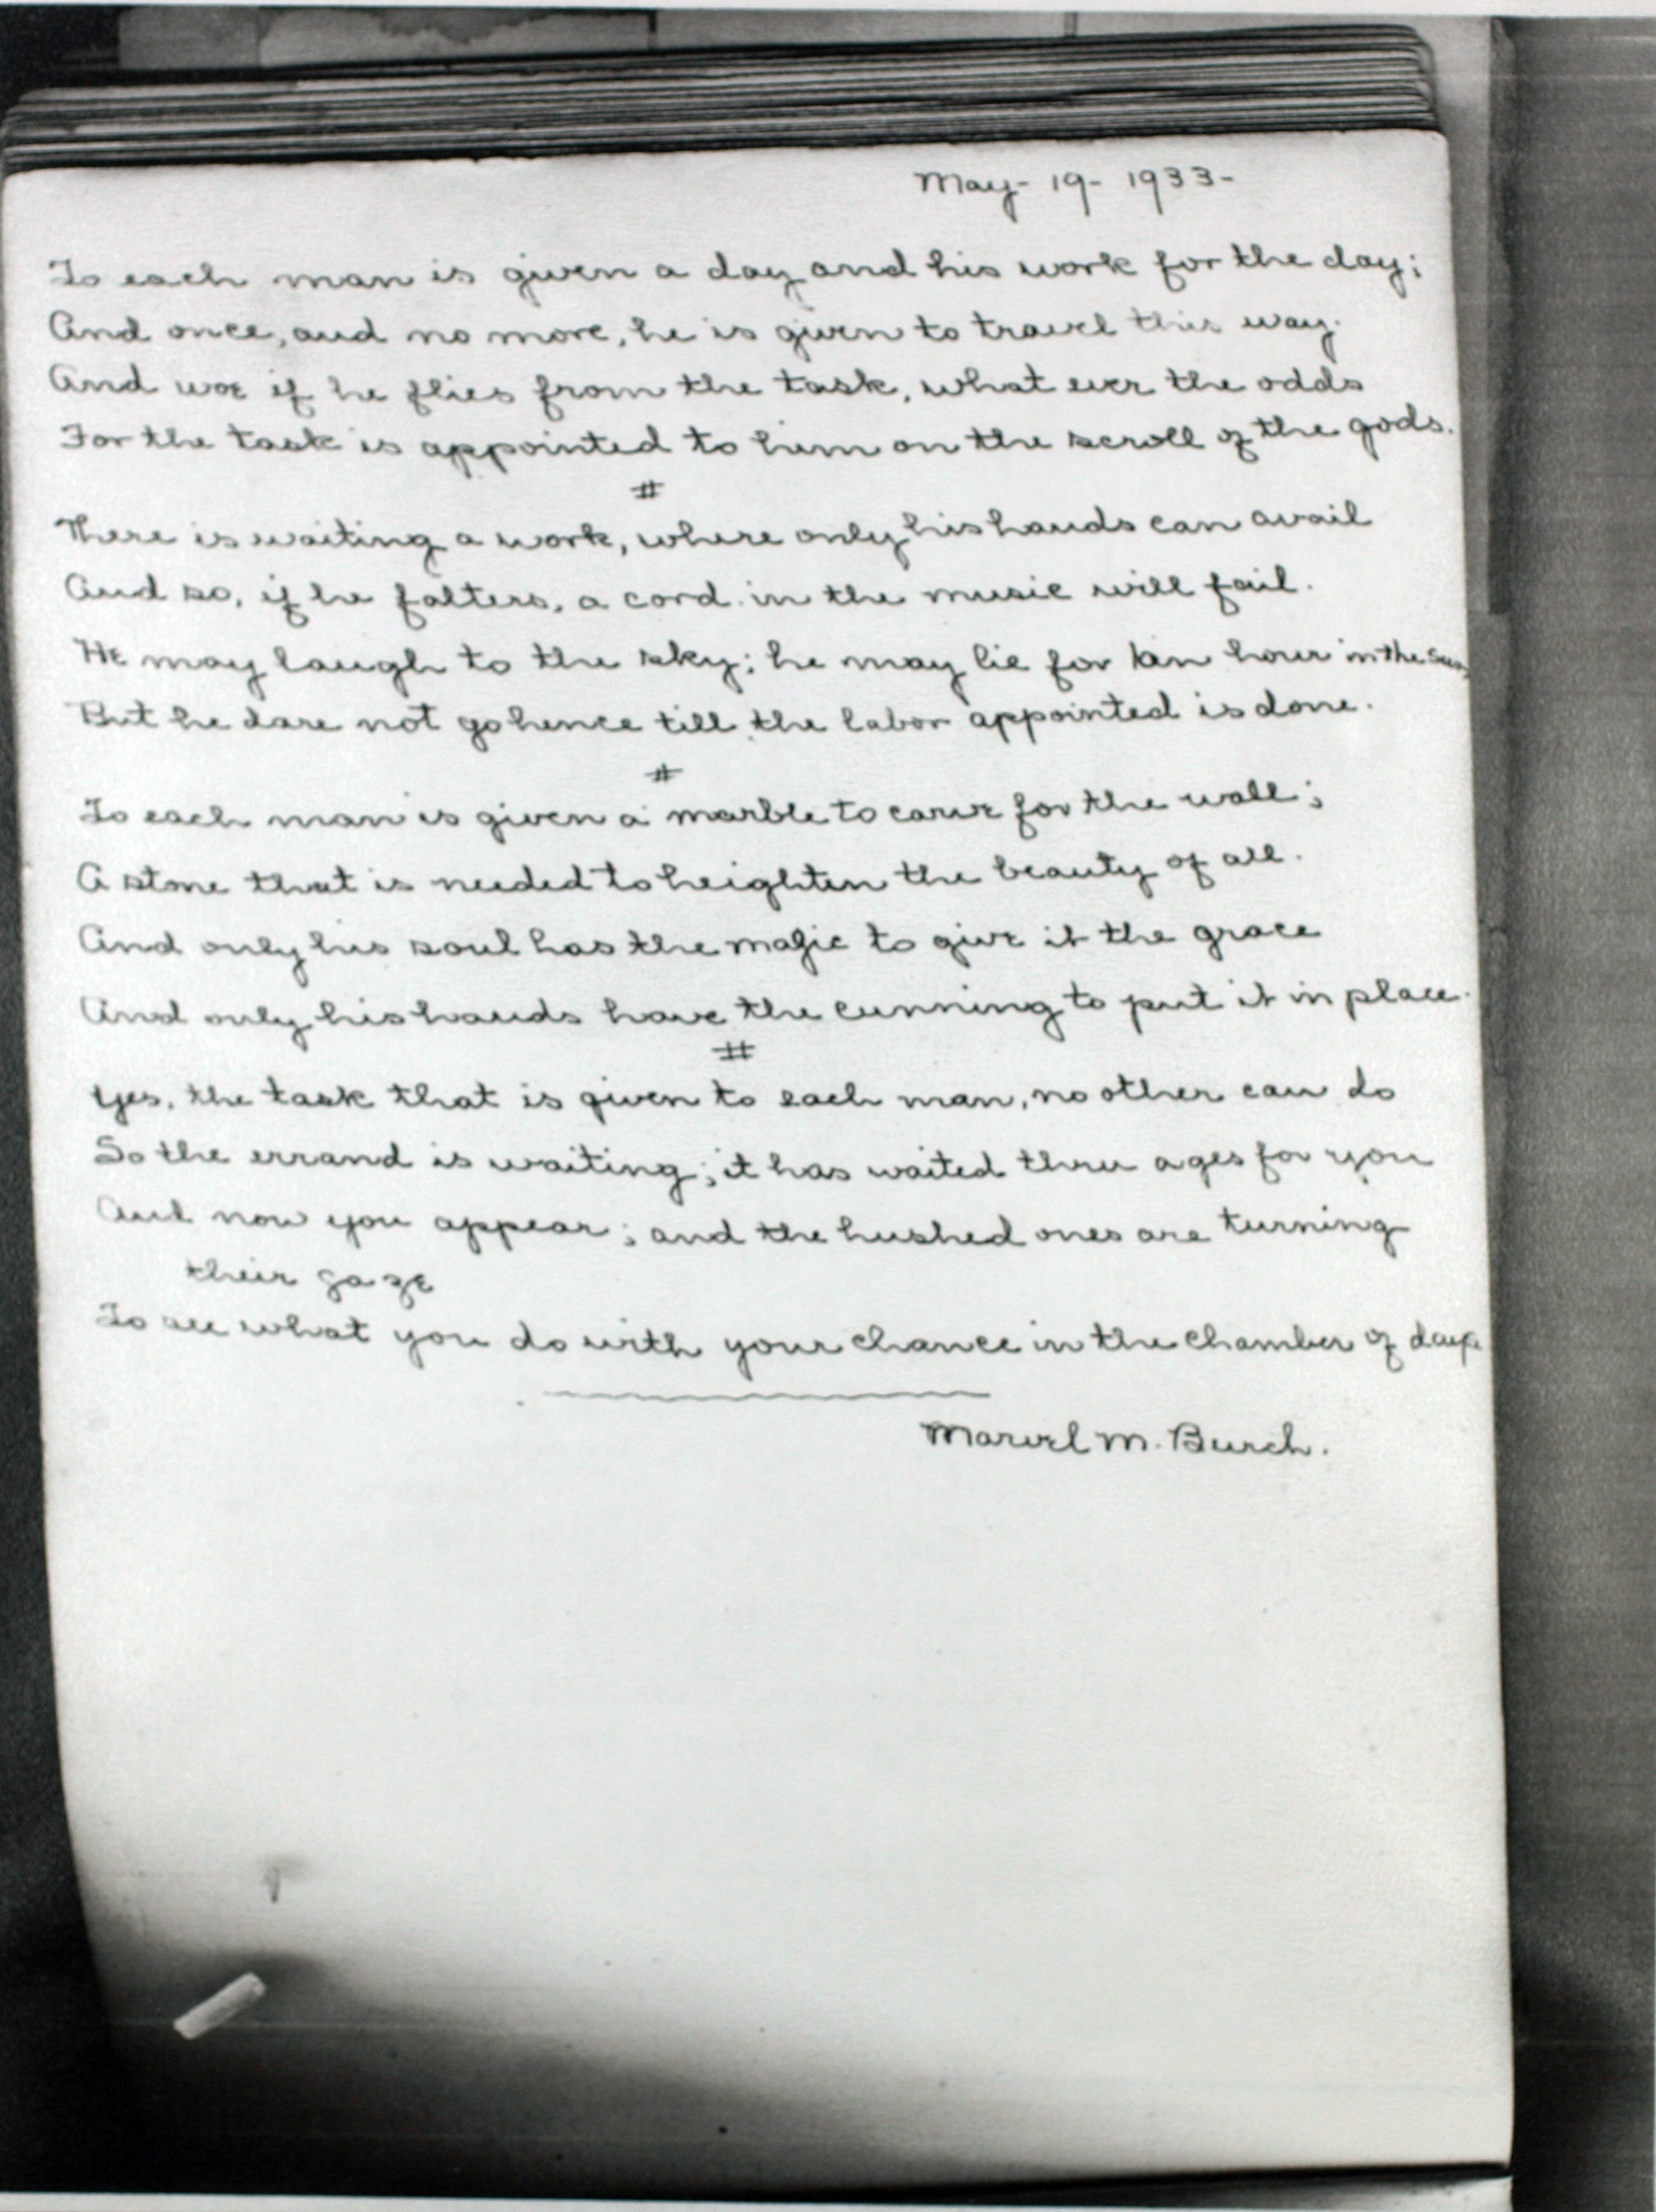 May - 19 - 1933 -
To each man is given a day and his work for the day;
And once, and no more, he is given to travel this way.
And woe if he flies from the task, what ever the odds
For the task is appointed to him on the scroll of the gods.
#
There is waiting a work, where only his hands can avail
And so, if he falters, a cord in the music will fail.
He may laugh to the sky; he may lie for an hour in the sun
But he dare not go hence till the labor appointed is done.
#
To each man is given a marble to carve for the wall;
A stone that is needed to heighten the beauty of all.
And only his soul has the magic to give it the grace
And only his hands have the cunning to put it in place.
#
Yes, the task that is given to each man, no other can do
So the errand is waiting; it has waited thru ages for you
And now you appear; and the hushed ones are turning
their gaze
To see what you do with your chance in the chamber of days
Marvel M. Burch.